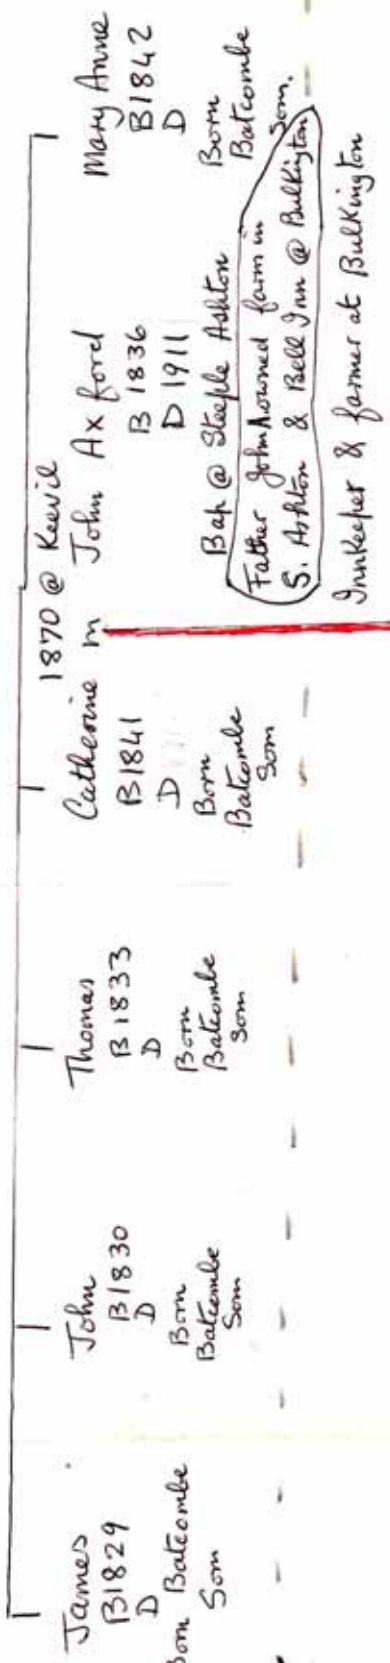 James
B1829
D
Born Batcombe
Som
John
B1830
D
Born
Batcombe
Som
Thomas
B1833
D
Born
Batcombe
Som
Catherine
B1841
D
Born
Batcombe
Som
1870 @ Keevil
m
John Axford
B 1836
D 1911
Bap @ Steeple Ashton
Father John A owned farm in
S. Ashton & Bell Inn @ Bulkington
Innkeeper & farmer at Bulkington
Mary Anne
B1842
D
Born
Batcombe
Som.